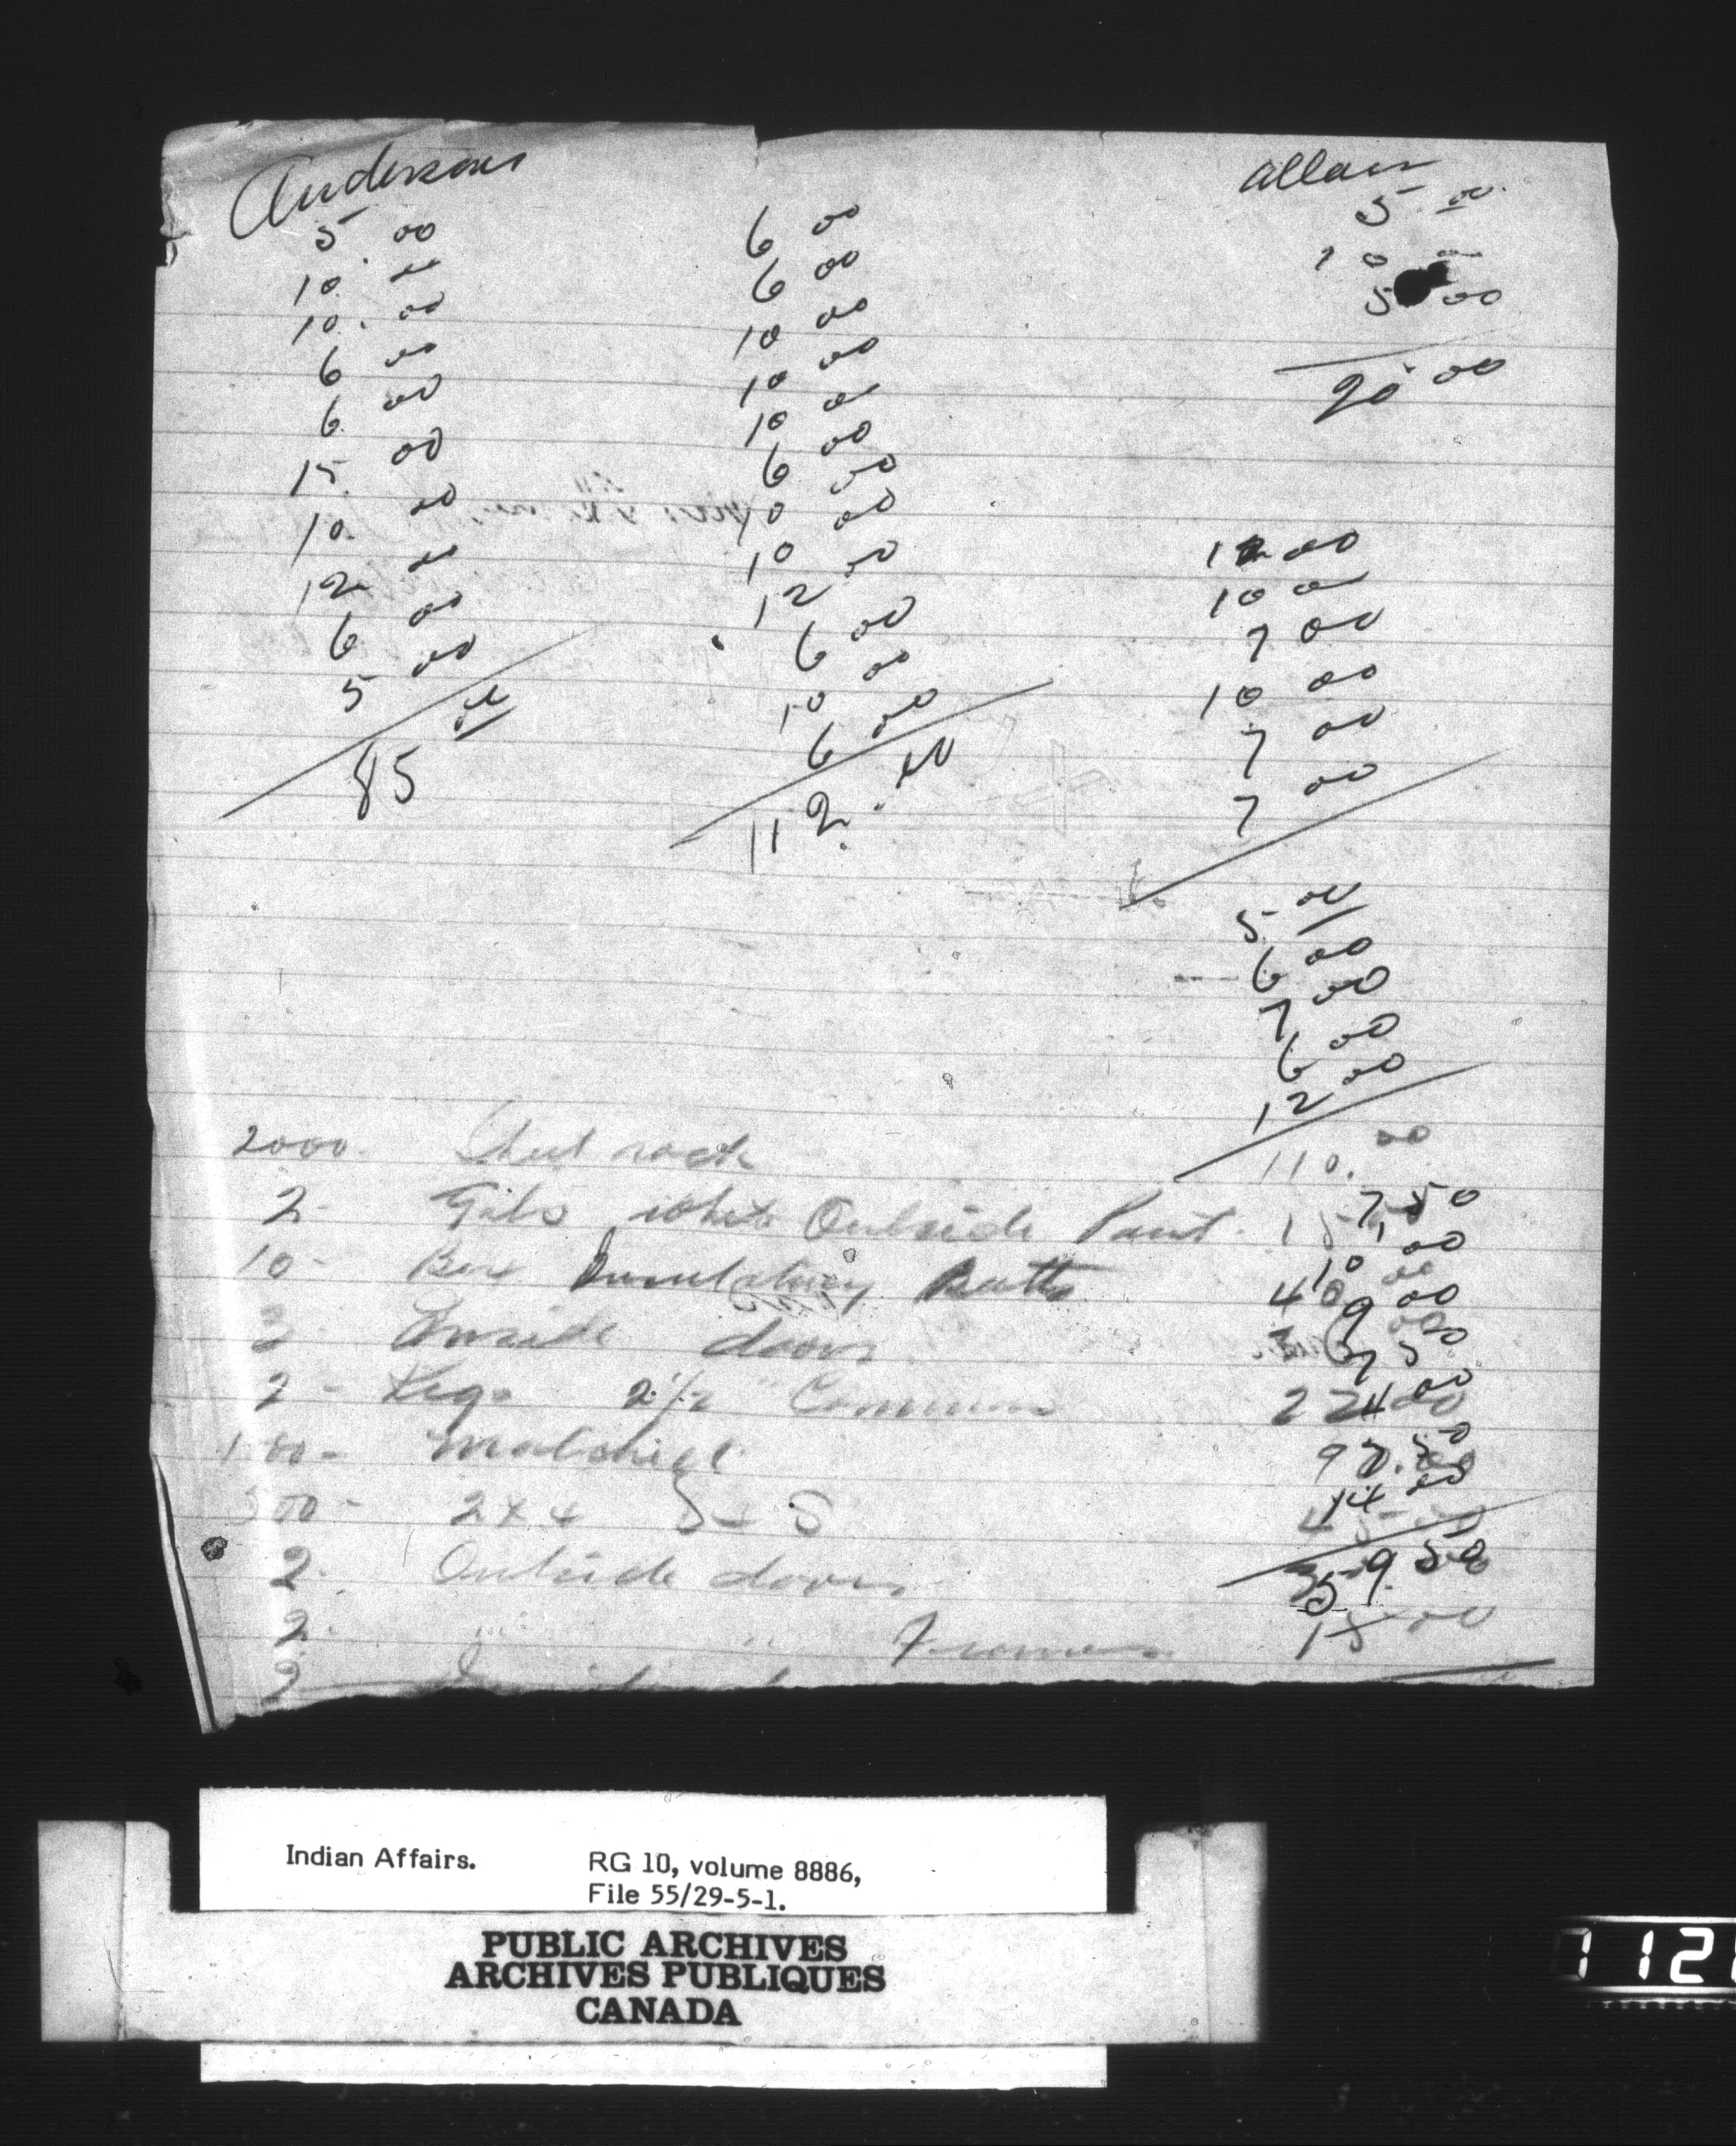 Andersons
5.00
10.00
10.00
6 00
6 00
15 00
10. 00
12 00
6 00
5 00
85 00
6 00
6 00
10 00
10 00
10 00
6 00
10 00
10 00
12 00
6 00
10 00
6 00
112.00
allan
5.00
10
5 00
20 00
12 00
10 00
7 00
10 00
7 00
7 00
5 00
6 00
7 00
6 00
12 00
2000. Sheet rock 110.00
2 - Gals white Outside Paint. 7.50
10 - Box Insulating Batts 40 00
10 00
9 00
Inside doors
7 50
2 - Kegs 2 1/2" Common 22 00
4 00
100 - material
97.50
14 00
500 - 2 x 4 S4S
2 - Outside doors
59.50
2. " " Frames 15 00
2
Indian Affairs. RG 10, volume 8886,
File 55/29-5-1.
PUBLIC ARCHIVES
ARCHIVES PUBLIQUES
CANADA
112